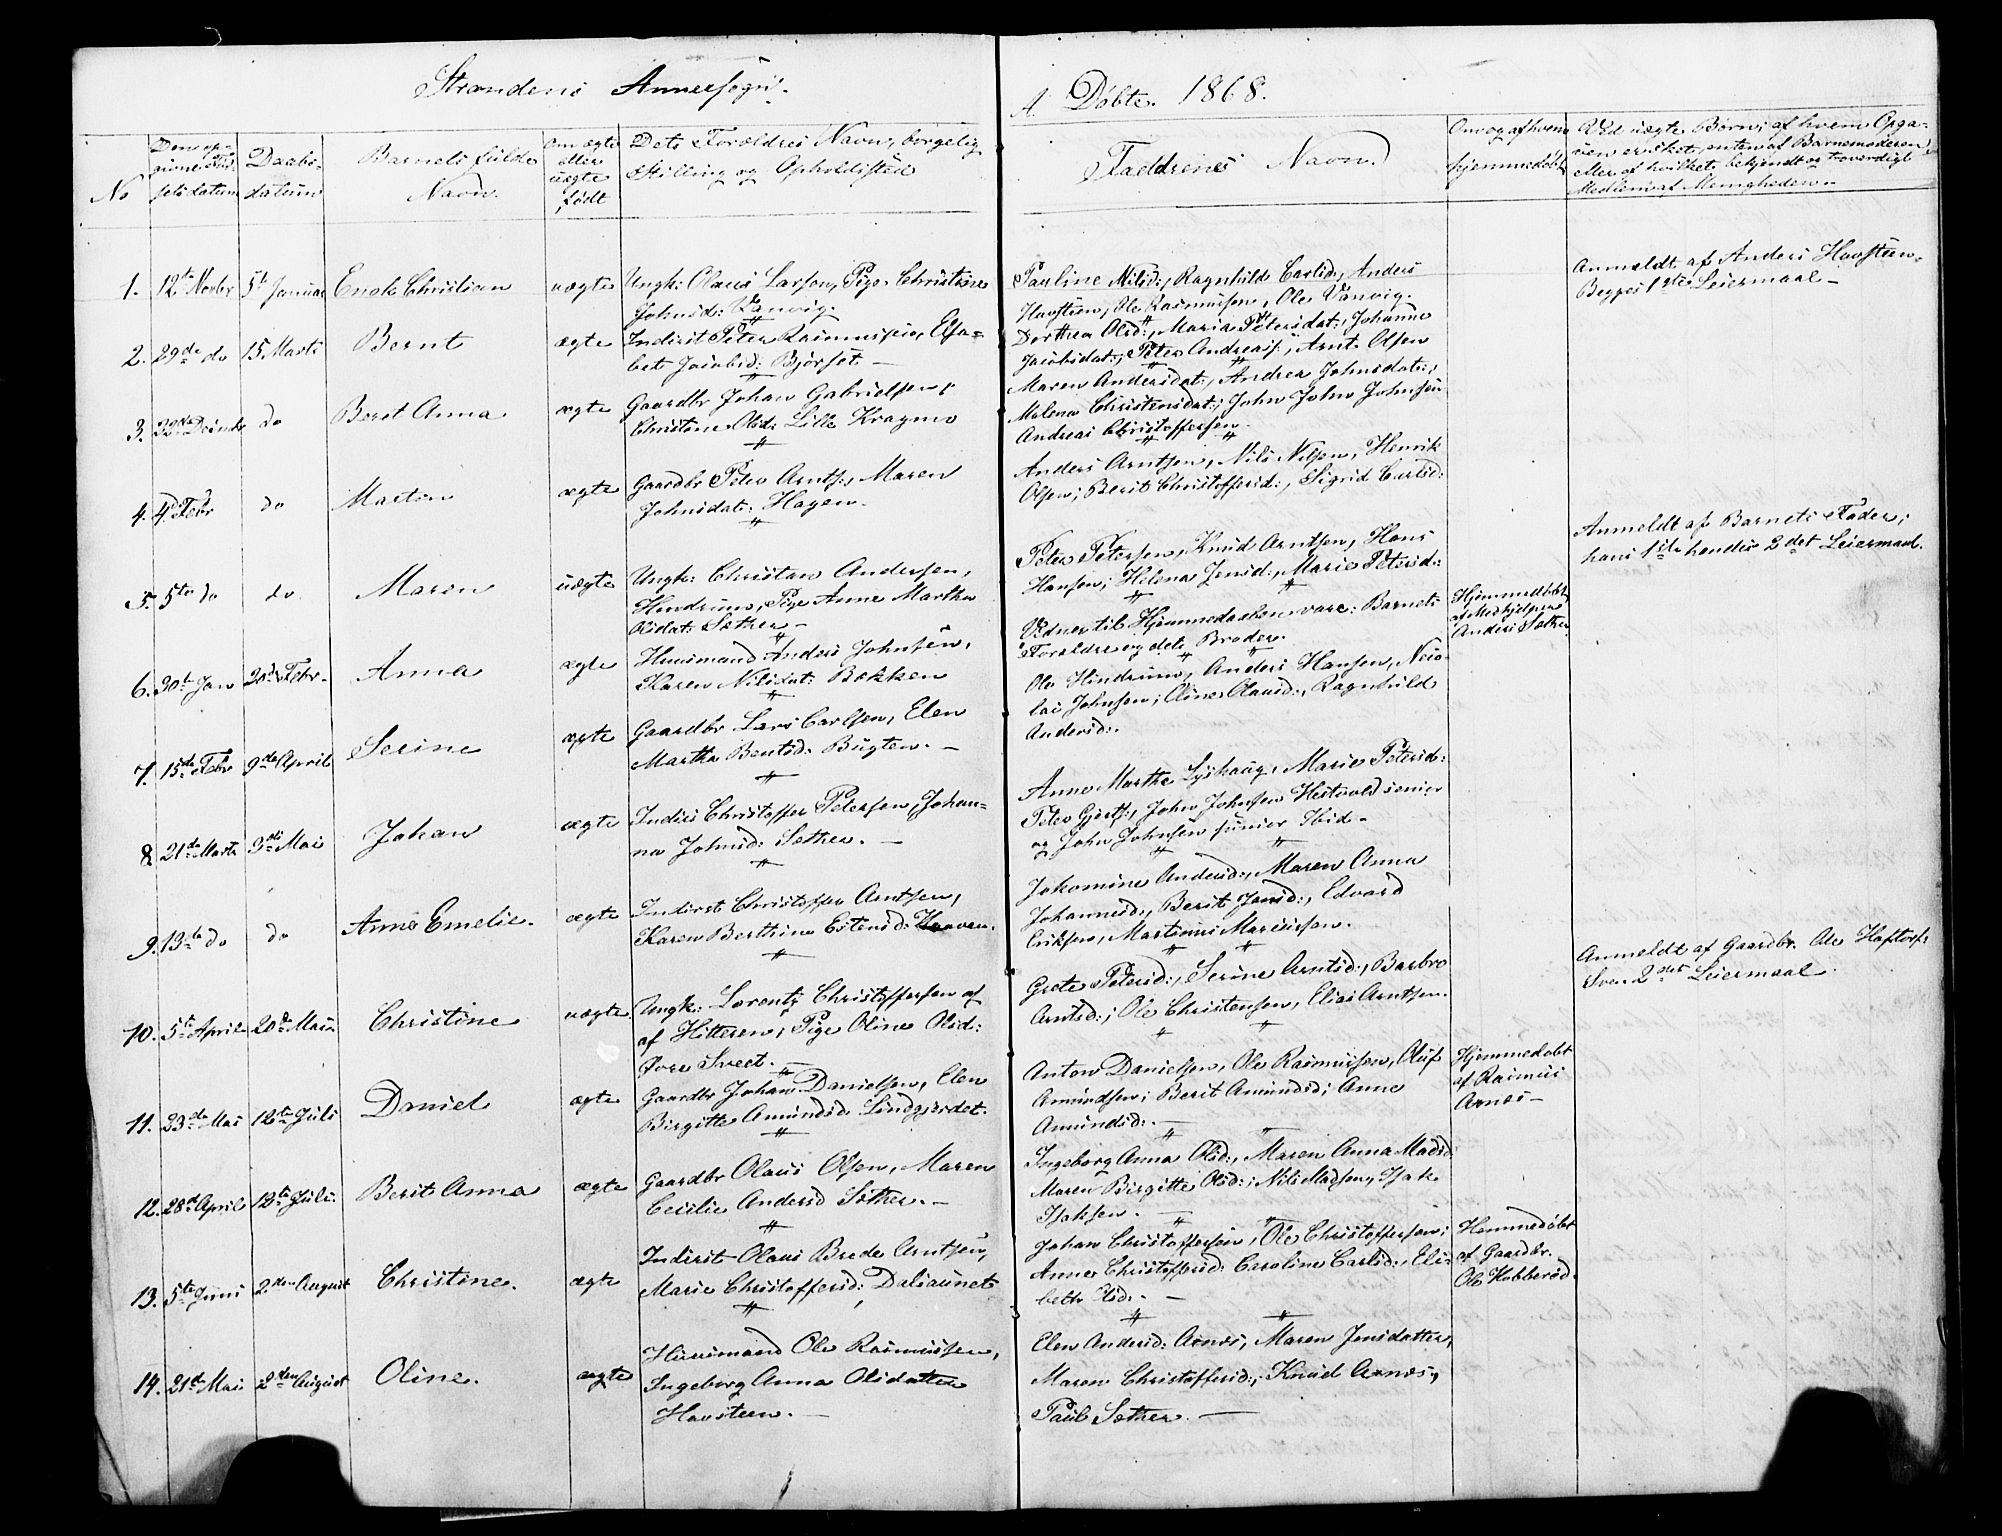 Strandens Annexsogn.
A. Døbte. 1868.
No
Den op-
givne Fød-
selsdatum
Daabs-
datum
Barnets fulde
Navn.
Om ægte
eller
uægte
født
Dets Forældres Navn, borgelig
Stilling og Opholdssted
Faddrenes Navn.
Om og af hvem
hjemmedøbt
Ved uægte Børn; af hvem Opga-
ven er skeet, enten af Barnemoderen
eller af hvilket bekjendt og troværdigt
Medlem af Menigheden.
1. 12te Novbr 5te Januar Enok Christian uægte Ungk: Olaus Larsen, Pige Christine
Johnsd: Vanvig.
Pauline Nilsd:, Ragnhild Carlsd:, Anders
Havsteen, Ole Rasmussen, Ole Vanvig.
Anmeldt af Anders Havsteen.
Begges 1ste Leiermaal
2. 29de do 15 Marts Bernt ægte Inderst Peter Rasmussen, Elsa-
bet Jacobsd: Bjørset
Dorthea Olsd:, Maria Petersdat:, Johanna
Jacobsdat:, Peter Andreass:, Arnt Olsen
3. Decembr do Beret Anna ægte Gaardbr Johan Gabrielsen,
Christine Olsd: Lille Kragmo
Maren Andersdat:, Andrea Johnsdat:,
Malena Christensdat:, John John Johnsen
Andreas Christoffersen
4. 4de Febr do Martin ægte Gaardbr Peter Arnts:, Maren
Johnsdat: Hagen.
Anders Arntsen, Nils Nilsen, Henrik
Olsen; Berit Christoffersd:, Sigrid Carlsd:
5. 5te do do Maren uægte Ungk: Christian Andersen,
Hindrum, Pige Anne Martha
Olsdat: Sæther
Peter Petersen, Knud Arntsen, Hans
Hansen; Helena Jensd:, Marie Petersd:
Anmeldt af Barnets Fader;
hans 1ste hendes 2det Leiermaal.
Vidner til Hjemmedaaben vare: Barnets
Forældre og dets Broder.
Hjemmedøbt
af Medhjelper
Anders Sæther
6. 30te Jan 20de Febr Anna ægte Huusmand Anders Johnsen,
Karen Nilsdat: Bakken
Ole Hindrum, Anders Hansen, Nico-
lai Johnsen; Oline Olausd:, Ragnhild
Andersd:.
7. 15de Febr 9de April Serine ægte Gaardbr Lars Carlsen, Elen
Martha Bentsd: Bugten.
Anne Marthe Lyshaug, Marie Petersd:
Peter Gjerts:, John Johnsen Hestvold senior
og John Johnsen junior Ibid
8. 21de Marts 3die Mai Johan ægte Inderst Christoffer Petersen, Johan-
na Johnsd: Sæther.
Jakomine Andersd:, Maren Anna
Johannesd:, Berit Jensd:, Edvard
Eriksen, Martinus Mariussen.
9. 13te do do Anne Emelie. ægte Inderst Christoffer Arntsen,
Karen Berthine Estensd: Kraaven.
Grete Petersd:, Serine Arntsd:, Barbro
Arntsd:; Ole Christensen, Elias Arntsen.
Anmeldt af Gaardbr. Ole Hafstorf:
Sven 2det Leiermaal.
10. 5te April 20de Mai Christine uægte Ungk: Lorents Christoffersen af
af Hitteren, Pige Oline Olsd:
Øvre Sveet.
Anton Danielsen, Ole Rasmussen, Oluf
Amundsen; Berit Amundsd; Anne
Amundsd:.
Hjemmedøbt
af Rasmus
Arnes
11. 23de Mai 12te Juli Daniel ægte Gaardbr Johan Danielsen, Elen
Birgitte Amundsd Lindgjerdet.
Ingeborg Anna Olsd:, Maren Anna Madsd:
Maren Birgitte Olsd:; Nils Madsen, Isak
Isaksen.
12. 28de April 12te Juli. Berit Anna ægte Gaardbr Olaus Olsen, Maren
Cecilie Andersd Sæther.
Johan Christoffersen, Ole Christoffersen;
Anne Christoffersd: Caroline Carlsd:, Eli-
beth Isd:.
Hemmedøbt
af Gaardbr.
Ole Kobberød
13. 5te Juni 2den August Christine. ægte Inderst Olaus Brede Arntsen,
Marie Christoffersd: Dalsaunet
Elen Andersd: Arnes, Maren Jensdatter,
Maren Christoffersd:, Knud Arnes,
Paul Sæther.
14. 21de Mai 2den August Oline. ægte Huusmand Ole Rasmussen,
Ingeborg Anna Olsdatter
Havsteen.